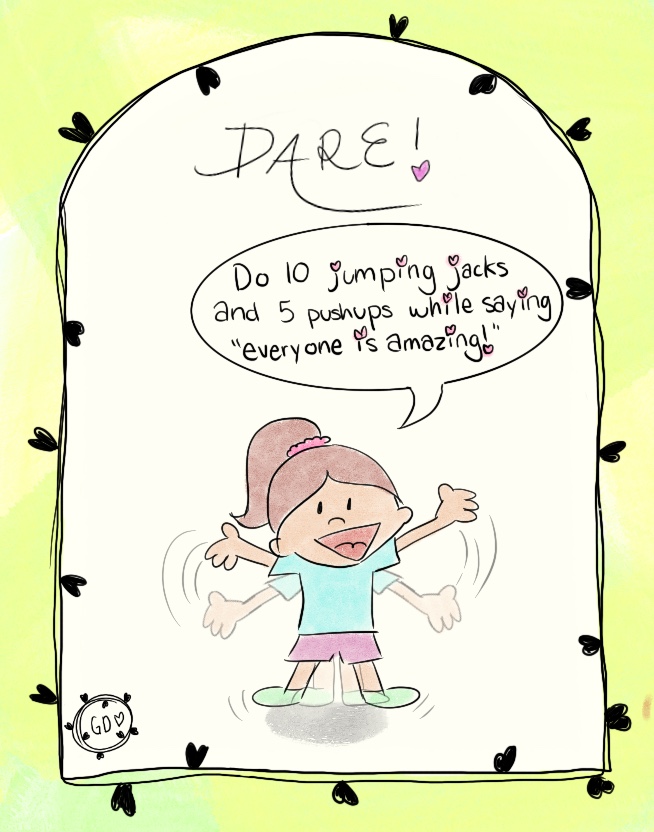 DARE!
Do 10 jumping jacks
and 5 pushups while saying
"everyone is amazing!"
GD